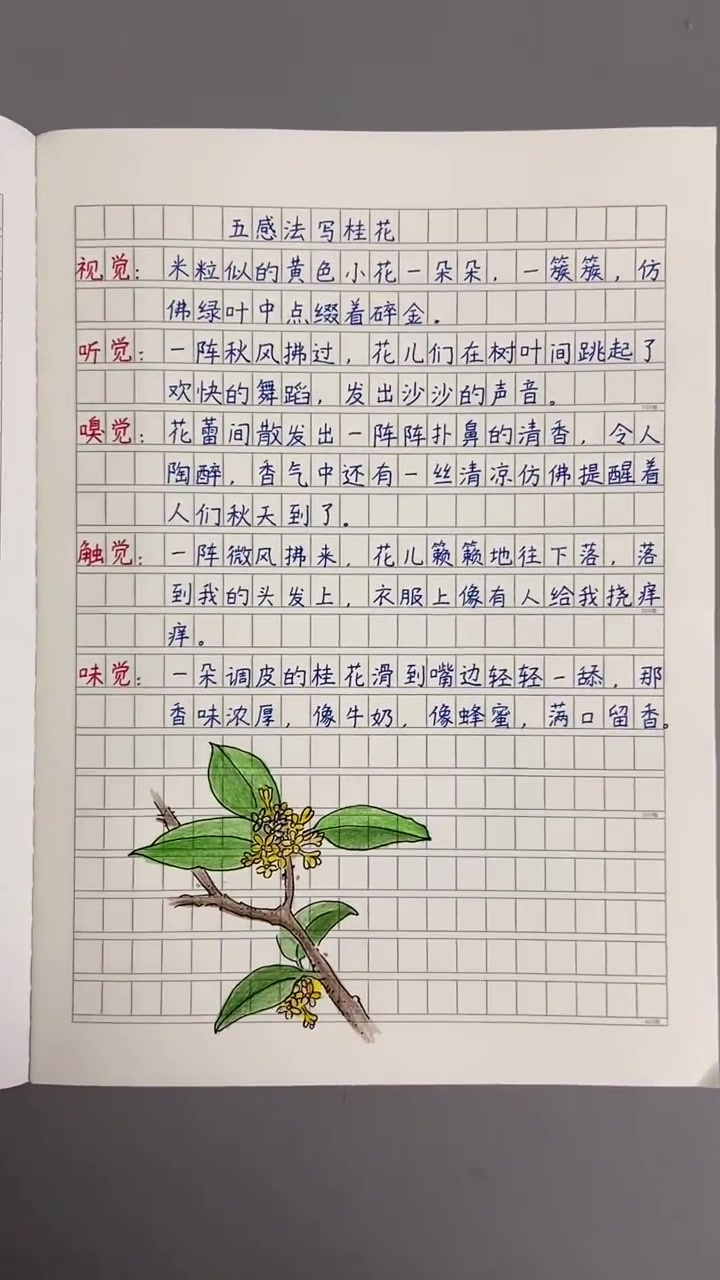 五感法写桂花
视觉：米粒似的黄色小花一朵朵，一簇簇，仿
佛绿叶中点缀着碎金。
听觉：一阵秋风拂过，花儿们在树叶间跳起了
欢快的舞蹈，发出沙沙的声音。
嗅觉：花蕾间散发出一阵阵扑鼻的清香，令人
陶醉，香气中还有一丝清凉仿佛提醒着
人们秋天到了。
触觉：一阵微风拂来，花儿簌簌地往下落，落
到我的头发上，衣服上像有人给我挠痒
痒。
味觉：一朵调皮的桂花滑到嘴边轻轻一舔，那
香味浓厚，像牛奶，像蜂蜜，满口留香。